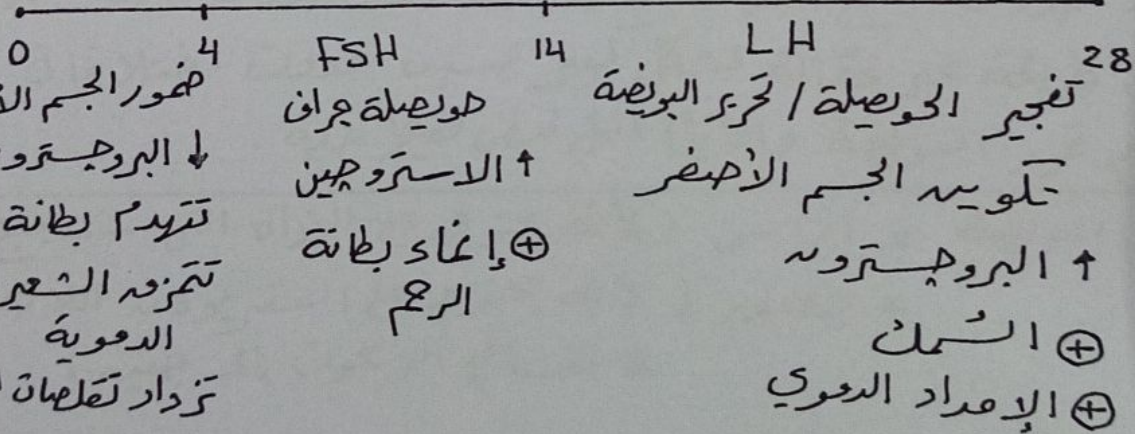 0 4 FSH 14 LH 28
ضمور الجسم الأ
↓ البروجسترو
تتهدم بطانة
تتمزق الشعير
الدموية
تزداد تقلصات
حويصلة جراف
↑ الاستروجين
⊕ إنماء بطانة
الرحم
تفجير الحويصلة / تحرير البويضة
تكوين الجسم الأصفر
↑ البروجسترون
⊕ السُمك
⊕ الإمداد الدموي